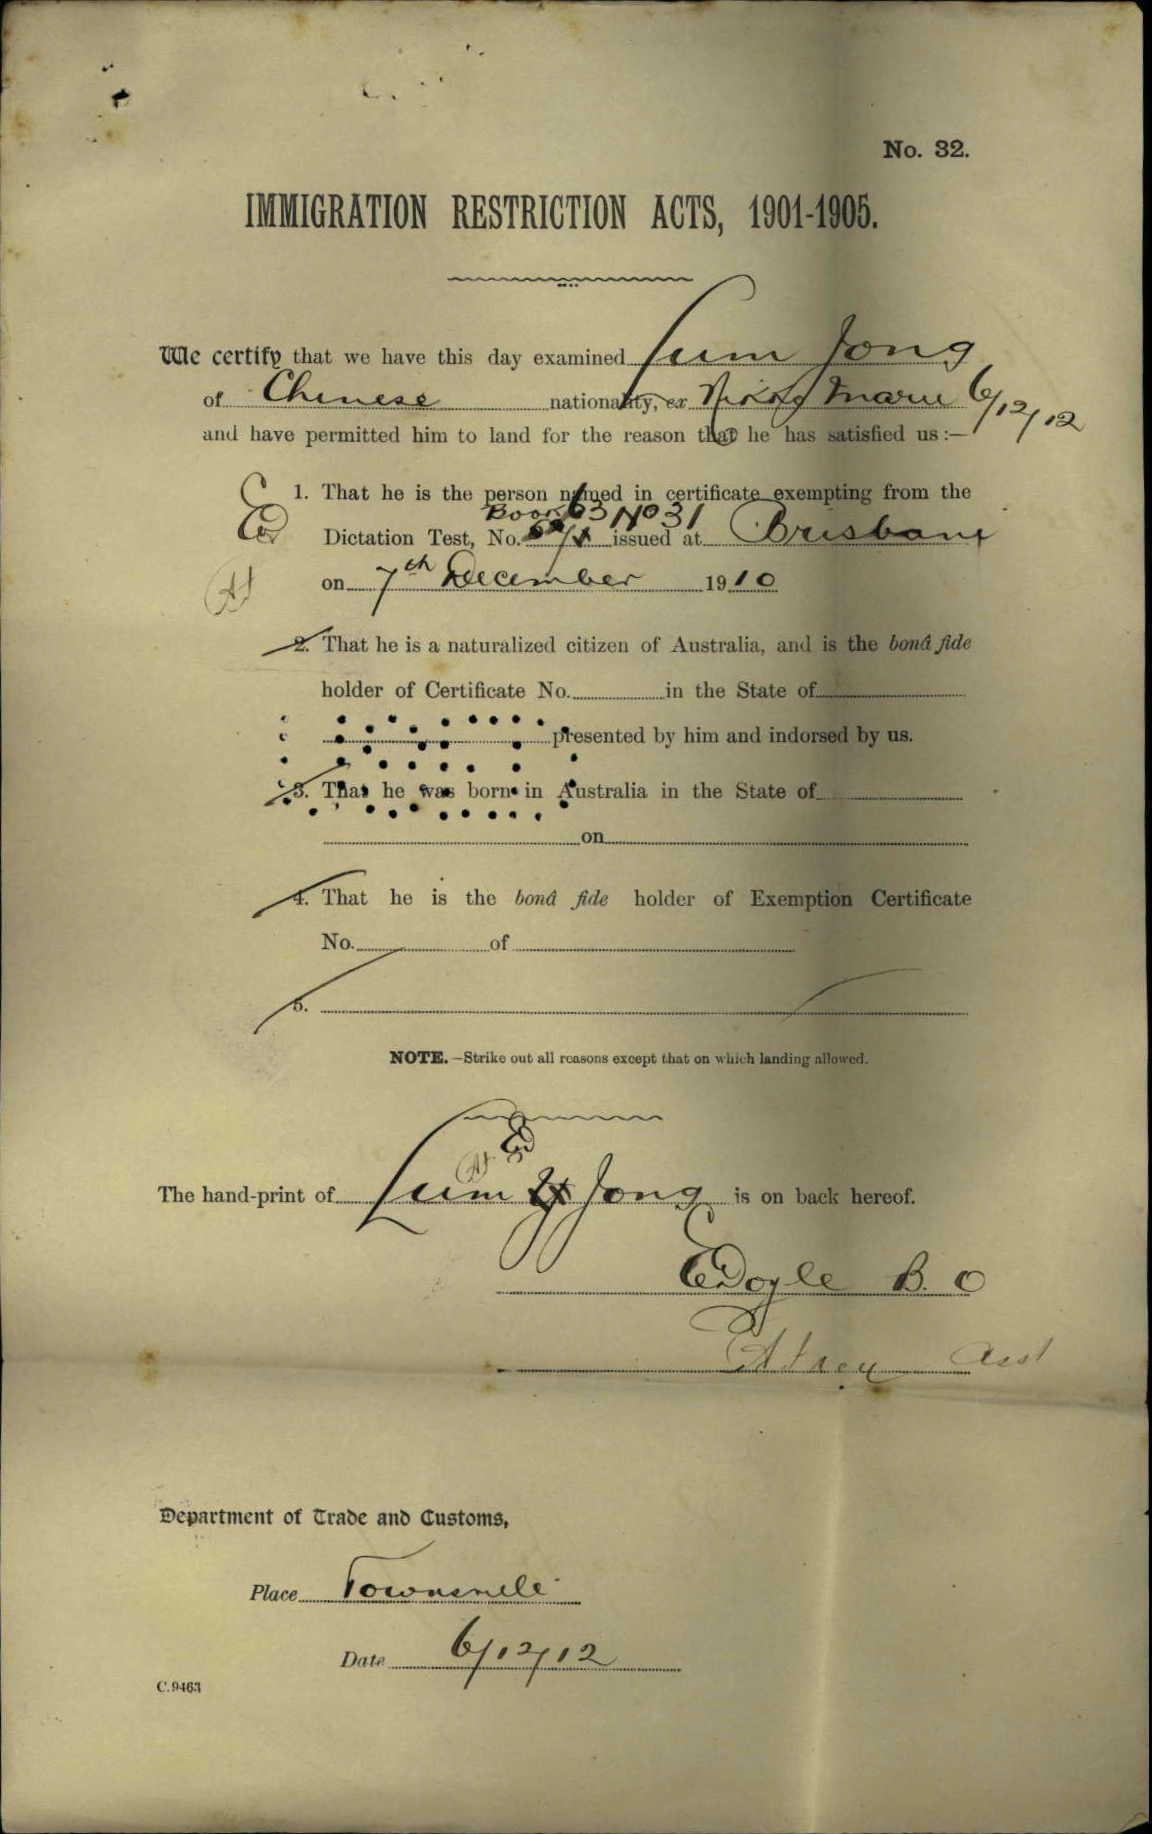 No. 32.
IMMIGRATION RESTRICTION ACTS, 1901-1905.
We certify that we have this day examined Lum Jong
of Chinese nationality, ex Maru 6/12/12
and have permitted him to land for the reason that he has satisfied us:—
1. That he is the person named in certificate exempting from the
Book 63 No 31
Dictation Test, No. issued at Brisbane
on 7th December 1910
2. That he is a naturalized citizen of Australia, and is the bonâ fide
holder of Certificate No. in the State of
presented by him and indorsed by us.
3. That he was born in Australia in the State of
on
4. That he is the bonâ fide holder of Exemption Certificate
No. of
5.
NOTE.—Strike out all reasons except that on which landing allowed.
The hand-print of Lum Jong is on back hereof.
EDoyle B. O
Asst
Department of Trade and Customs,
Place Townsville
Date 6/12/12
C.9463